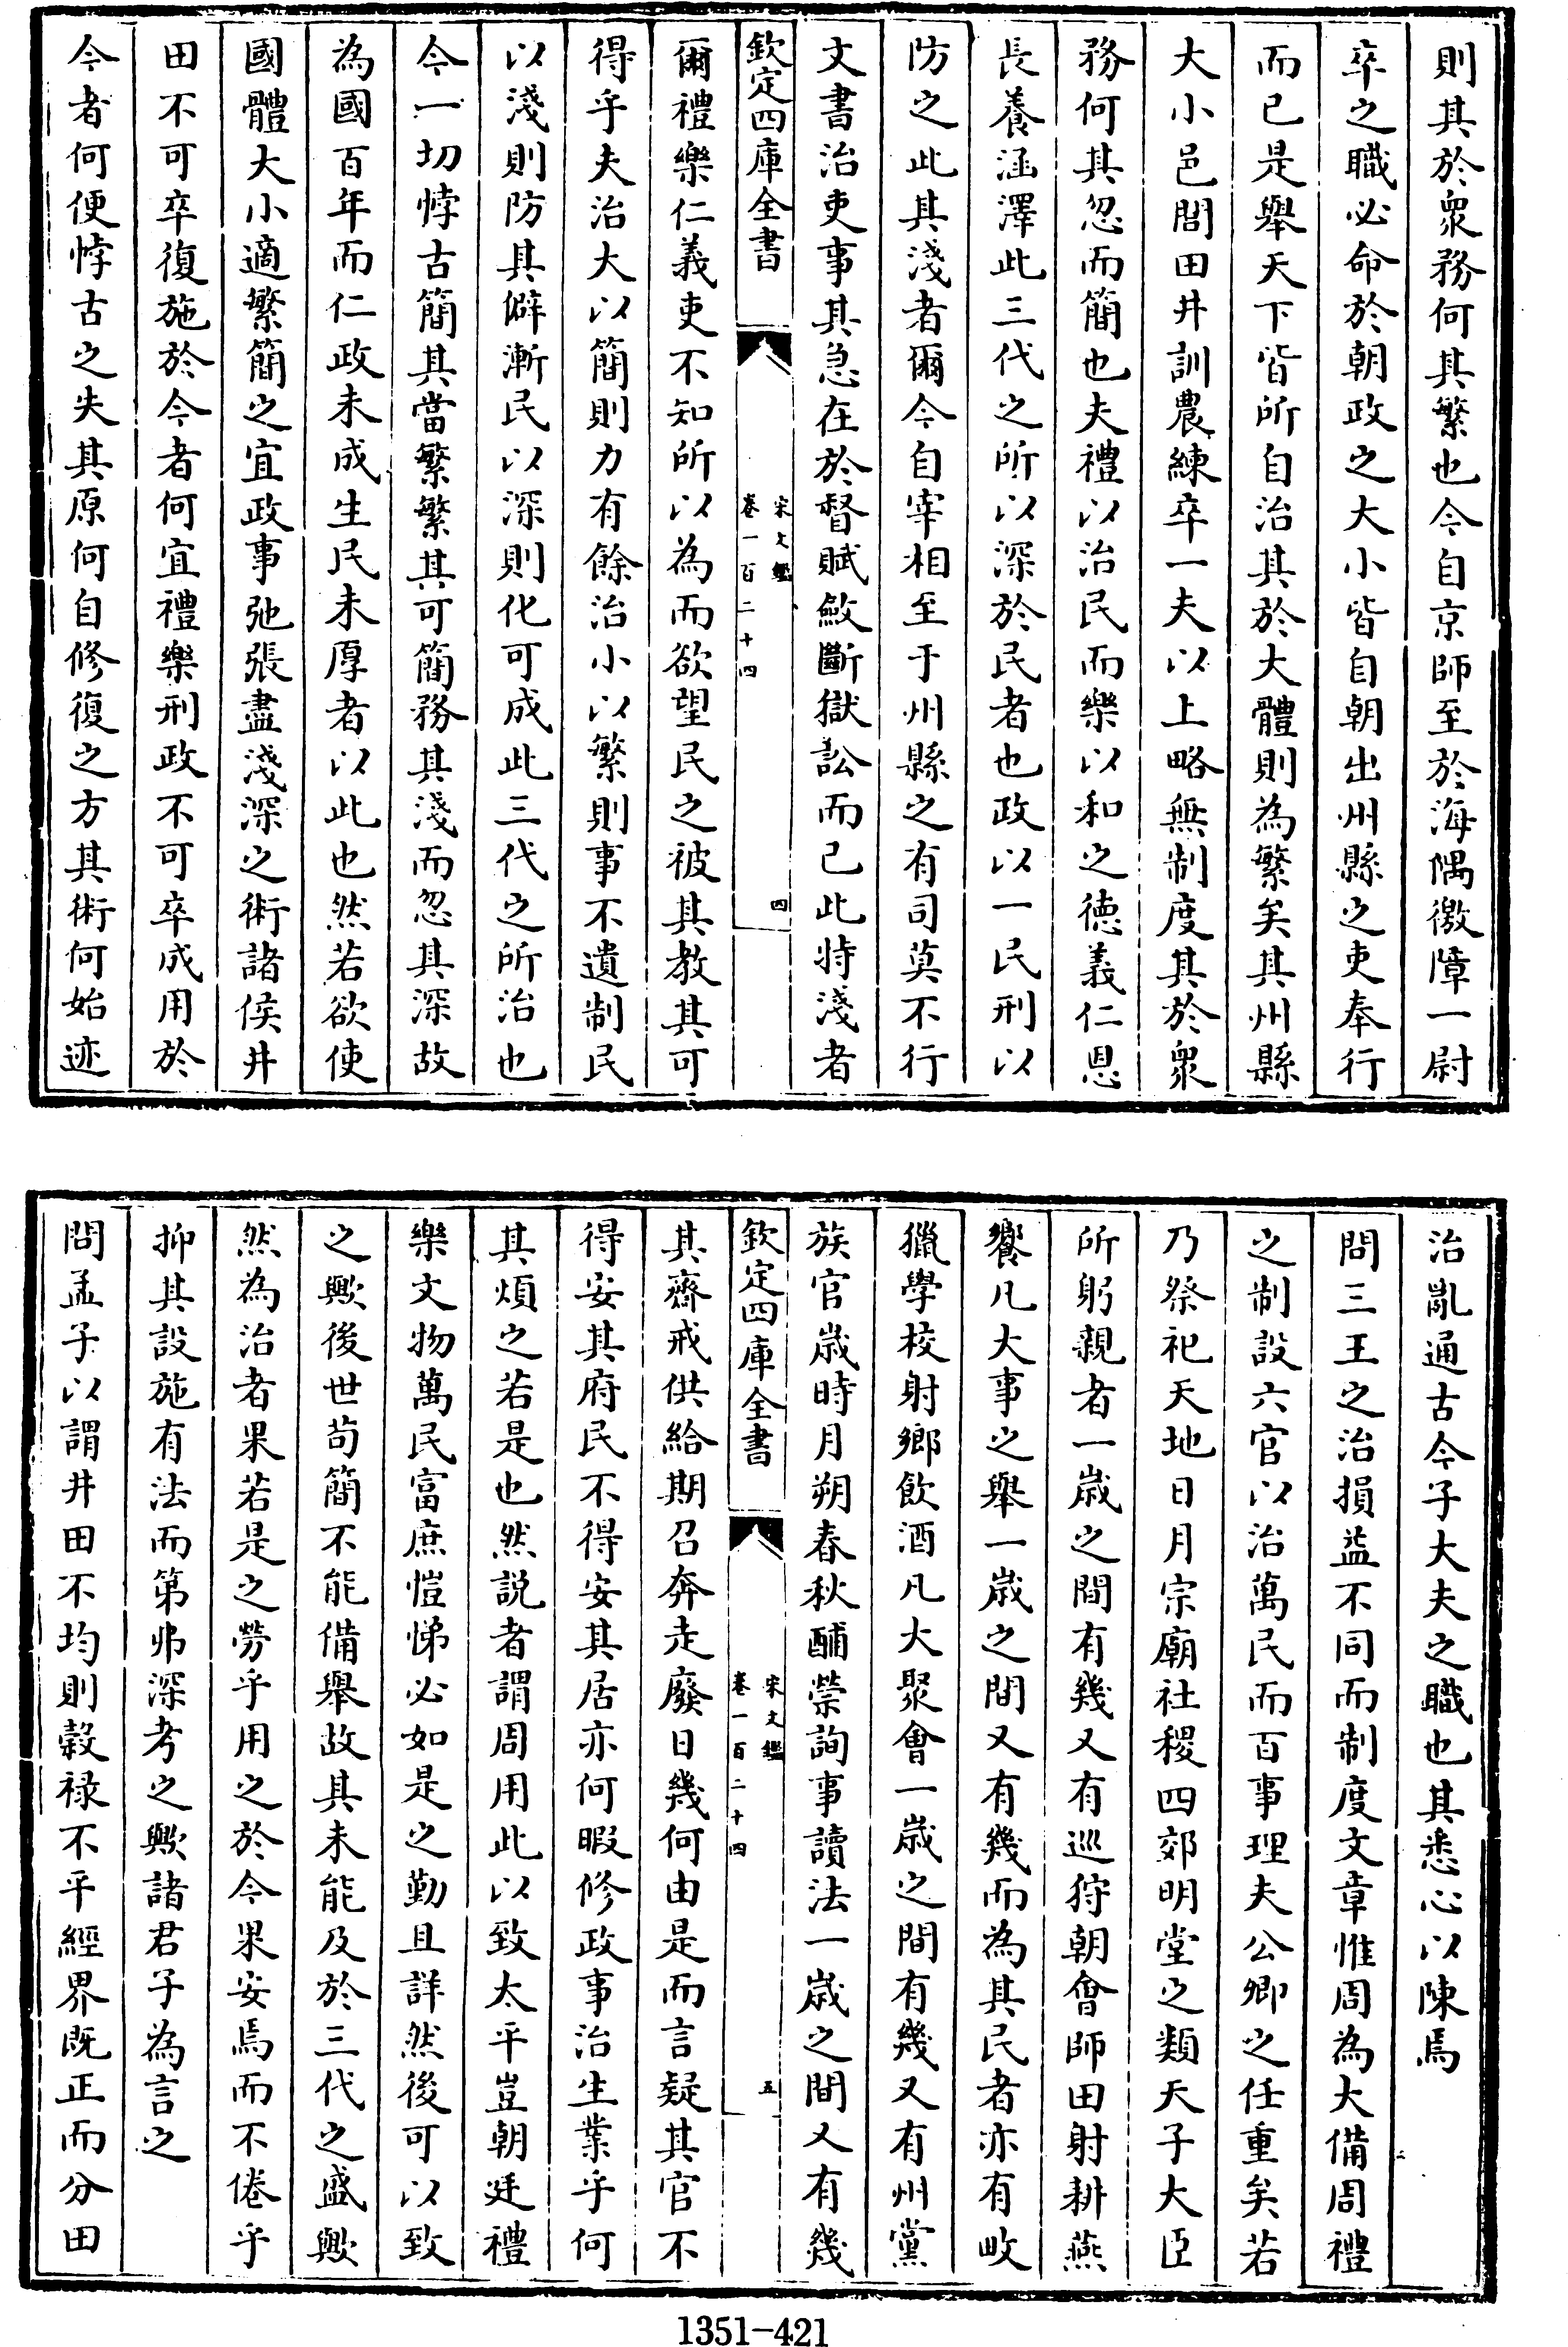 則其於衆務何其繁也今自京師至於海隅徼障一尉
卒之職必命於朝政之大小皆自朝出州縣之吏奉行
而已是舉天下皆所自治其於大體則為繁矣其州縣
大小邑閭田井訓農練卒一夫以上略無制度其於衆
務何其忽而簡也夫禮以治民而樂以和之德義仁恩
長養涵澤此三代之所以深於民者也政以一民刑以
防之此其淺者爾今自宰相至于州縣之有司莫不行
文書治吏事其急在於督賦斂斷獄訟而已此特淺者
欽定四庫全書
宋文鑑
卷一百二十四
四
爾禮樂仁義吏不知所以為而欲望民之被其教其可
得乎夫治大以簡則力有餘治小以繁則事不遺制民
以淺則防其僻漸民以深則化可成此三代之所治也
今一切悖古簡其當繁繁其可簡務其淺而忽其深故
為國百年而仁政未成生民未厚者以此也然若欲使
國體大小適繁簡之宜政事弛張盡淺深之術諸侯井
田不可卒復施於今者何宜禮樂刑政不可卒成用於
今者何便悖古之失其原何自修復之方其術何始迹
治亂通古今子大夫之職也其悉心以陳焉
問三王之治損益不同而制度文章惟周為大備周禮
之制設六官以治萬民而百事理夫公卿之任重矣若
乃祭祀天地日月宗廟社稷四郊明堂之類天子大臣
所躬親者一歲之間有幾又有巡狩朝會師田射耕燕
饗凡大事之舉一歲之間又有幾而為其民者亦有畋
獵學校射鄉飲酒凡大聚會一歲之間有幾又有州黨
族官歲時月朔春秋酺禜詢事讀法一歲之間又有幾
欽定四庫全書
宋文鑑
卷一百二十四
五
其齋戒供給期召奔走廢日幾何由是而言疑其官不
得安其府民不得安其居亦何暇修政事治生業乎何
其煩之若是也然說者謂周用此以致太平豈朝廷禮
樂文物萬民富庶愷悌必如是之勤且詳然後可以致
之歟後世苟簡不能備舉故其未能及於三代之盛歟
然為治者果若是之勞乎用之於今果安焉而不倦乎
抑其設施有法而第弗深考之歟諸君子為言之
問孟子以謂井田不均則穀祿不平經界既正而分田
1351-421